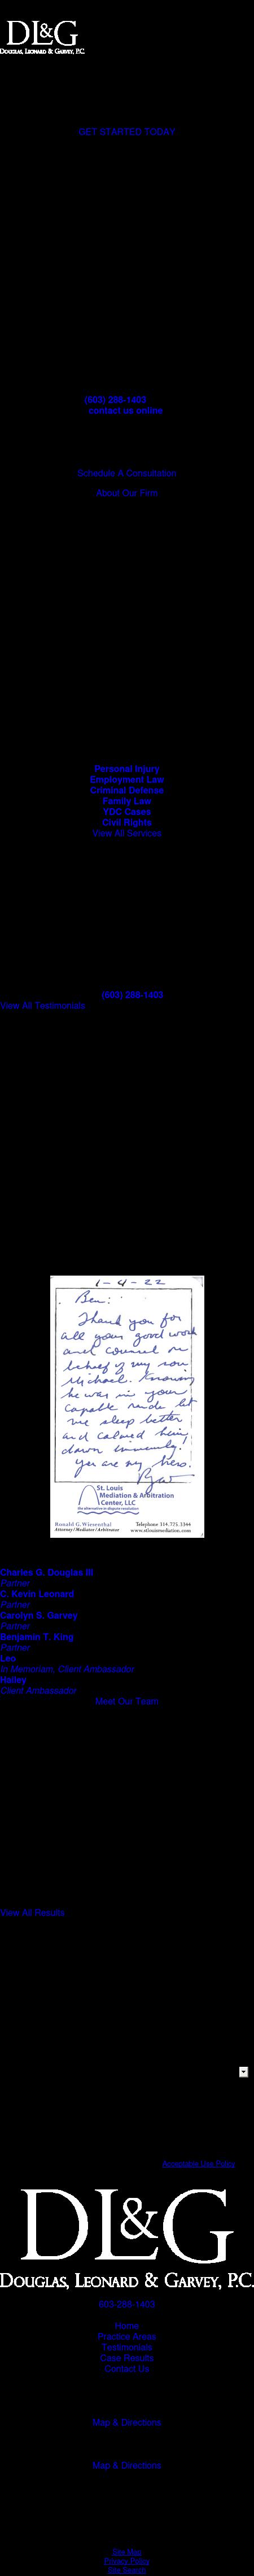 DL&G
DOUGLAS, LEONARD & GARVEY, P.C.
GET STARTED TODAY
(603) 288-1403
contact us online
Schedule A Consultation
About Our Firm
Personal Injury
Employment Law
Criminal Defense
Family Law
YDC Cases
Civil Rights
View All Services
(603) 288-1403
View All Testimonials
1-4-22
Ben:
Thank you for
all your good work
and counsel on
behalf of my son
Michael. Knowing
he was in your
capable hands let
me sleep better
and calmed him
down immensely.
You are my hero.
St. Louis
Mediation & Arbitration
Center, LLC
the alternative in dispute resolution
Ronald G. Wiesenthal
Attorney/Mediator/Arbitrator
Telephone 314.725.5344
www.stlouismediation.com
Charles G. Douglas III
Partner
C. Kevin Leonard
Partner
Carolyn S. Garvey
Partner
Benjamin T. King
Partner
Leo
In Memoriam, Client Ambassador
Hailey
Client Ambassador
Meet Our Team
View All Results
Acceptable Use Policy
DL&G
DOUGLAS, LEONARD & GARVEY, P.C.
603-288-1403
Home
Practice Areas
Testimonials
Case Results
Contact Us
Map & Directions
Map & Directions
Site Map
Privacy Policy
Site Search